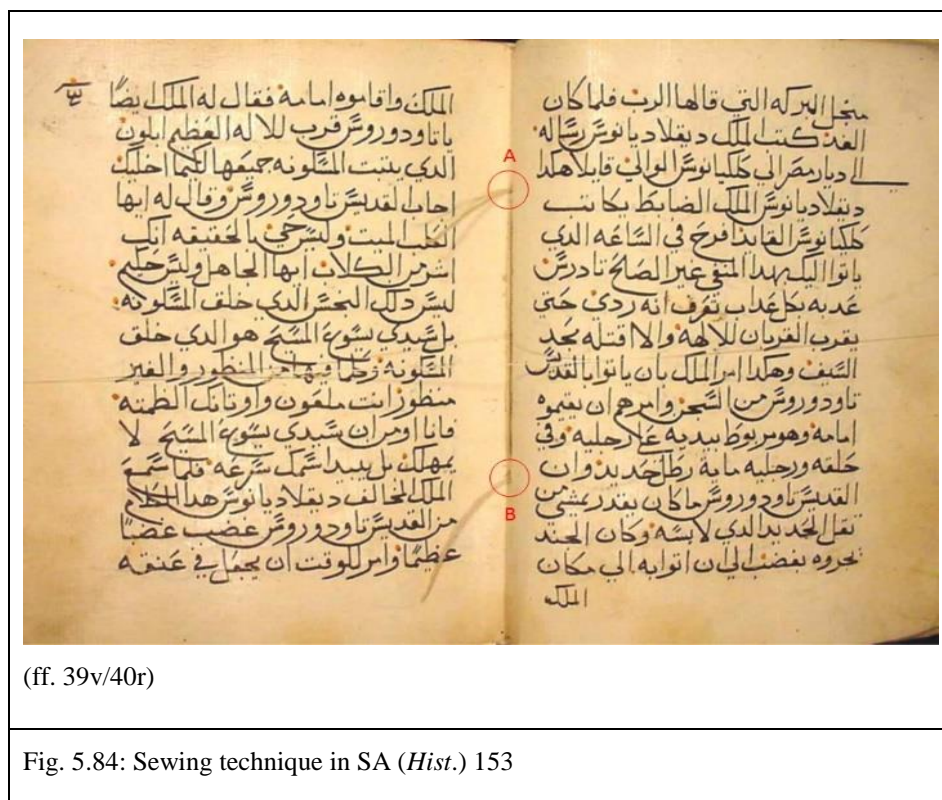 منجل البركه التي قالها الرب فلما كان
الغد كتب الملك ديقلاديانوس رساله
الي ديار مصر الي كلكيانوس الوالي قايلا هكدا
ديقلاديانوس الملك الضابط يكاتب
كلكيانوس القايد افرح في الساعه الدي
ياتوا اليك بهدا المنفي غير الصالح تادرس
عدبه بكل عداب تعرف انه ردي حتي
يقرب القربان للالهة والا اقتله بحد
السيف وهكدا امر الملك بان ياتوا بالقديس
تاودوروس من السجن وامرهم ان يقيموه
امامه وهو مربوط بيديه علي رجليه وفي
حلقه ورجليه ماية رطل حديد وان
القديس تاودوروس ماكان يقدر يمشي من
تقل الحديد الدي لابسه وكان الجند
يجروه بغضب الي ان اتوا به الي مكان
الملك
الملك واقاموه امامه فقال له الملك ايضا
ياتاودوروس قرب للاله العظيم ابلون
الدي يتبت المسكونه جميعها لكيما اخليك
اجاب القديس تاودوروس وقال له ايها
الكلب الميت وليس حي بالحقيقه انك
اشر من الكلاب ايها الجاهل وليس حكيم
ليس دلك النجس الدي خلق المسكونه
بل سيدي يسوع المسيح هو الدي خلق
المسكونه وكلما فيها من المنظور والغير
منظور انت ملعون واوتانك الطمته
فانا اومن ان سيدي يسوع المسيح لا
يمهلك بل يبيد اسمك سرعه فلما سمع
الملك المخالف ديقلاديانوس هدا الكلام
من القديس تاودوروس غضب غضبا
عظيما وامر للوقت ان يجعل في عنقه
A
B
(ff. 39v/40r)
Fig. 5.84: Sewing technique in SA (Hist.) 153